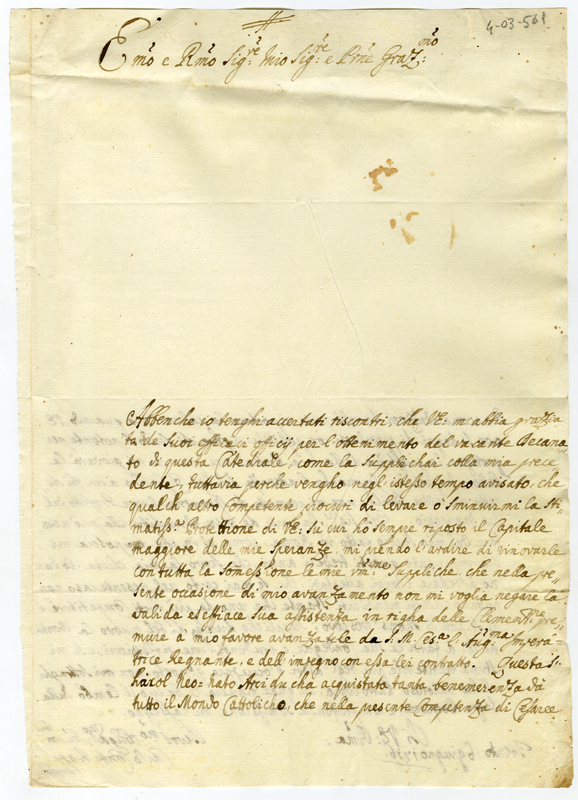 4-03-561
Emo͂ e Rmo͂ Sig:re Mio Sig:re e Prne͂ Graz:mo
Abbenche io tenghi accertati riscontri, che VE: m'abbia grazzia
ta de suoi efficaci oficij per l'ottenimento del vacante Decana„
to di questa Catedrale, come la supplichai colla mia prece
dente, tuttavia perche vengho negl'istesso tempo avisato, che
qualch'altro Competente procuri di levare o sminuirmi la Sti„
matiss:a Protettione di VE: su cui ho sempre riposto il Capitale
maggiore delle mie Speranze, mi prendo l'ardire di rinovarle
con tutta la somessione le mie Suppliche che nella pre„
sente ocasione di mio avanzamento non mi voglia negare la
valida et efficace sua assistenza in righa delle Clement:me pre„
mure à mio favore avanzatele da S. M. Ces:a C. Aug:ma Impera„
trice Regnante, e dell'impegno con essa lei contratto. Questa
col Neo-nato Arciducha acquistata tanta benemerenza dà
tutto il Mondo Cattolicho, che nella presente Competenza di Cesaree